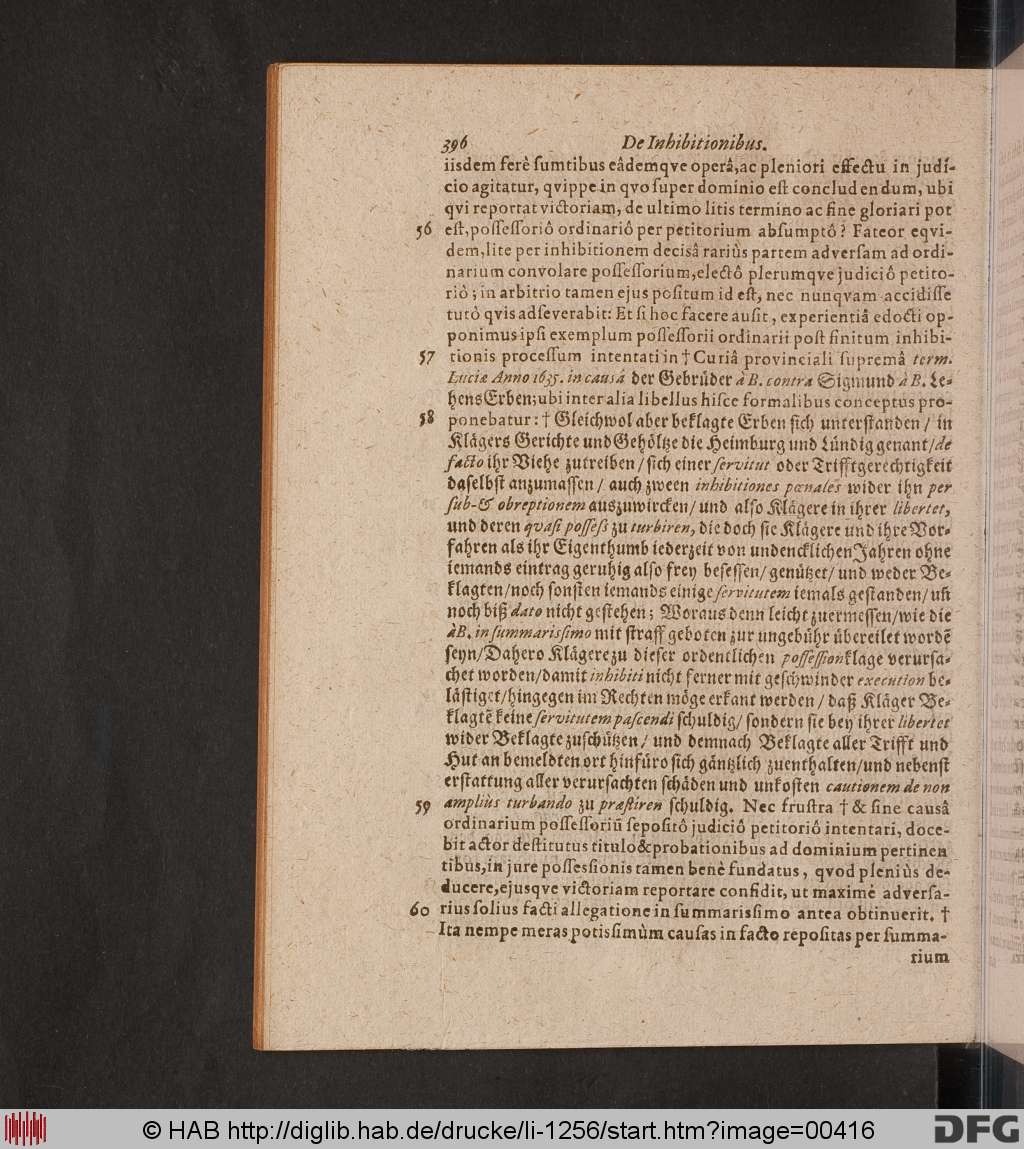 396 De Inhibitionibus.
iisdem ferè ſumtibus eâdemqve operâ, ac pleniori effectu in judí-
cio agitatur, qvippe in qvo ſuper dominio eſt concludendum, ubi
qvi reportat victoriam, de ultimo litis termino ac fine gloriari pot
56 eſt, poſſeſſoriô ordinariô per petitorium abſumptô? Fateor eqvi-
dem, lite per inhibitionem decisâ rariùs partem adverſam ad ordi-
narium convolare poſſeſſorium, electô plerumqve judiciô petito-
riô; in arbitrio tamen ejus poſitum id eſt, nec nunqvam accidiſſe
tutò qvis adſeverabit: Et ſi hoc facere auſit, experientiâ edocti op-
ponimus ipſi exemplum poſſeſſorii ordinarii poſt finitum inhibi-
57 tionis proceſſum intentati in † Curiâ provinciali ſupremâ term.
Luciæ Anno 1635. in causâ der Gebrüder à B. contra Sigmund à B. Le-
hens Erben; ubi inter alia libellus hiſce formalibus conceptus pro-
58 ponebatur: † Gleichwol aber beklagte Erben ſich unterſtanden / in
Klägers Gerichte und Gehöltze die Heimburg und Lündig genant / de
facto ihr Viehe zutreiben / ſich einer ſervitut oder Trifftgerechtigkeit
daſelbſt anzumaſſen / auch zween inhibitiones pœnales wider ihn per
ſub- & obreptionem auszuwircken / und alſo Klägere in ihrer libertet,
und deren qvaſi poſſeſs zu turbiren, die doch ſie Klägere und ihre Vor-
fahren als ihr Eigenthumb iederzeit von undencklichen Jahren ohne
iemands eintrag geruhig alſo frey beſeſſen / genützet / und weder Be-
klagten / noch ſonſten iemands einige ſervitutem iemals geſtanden / uñ
noch biß dato nicht geſtehen; Woraus denn leicht zuermeſſen / wie die
àB. in ſummariſsimo mit ſtraff geboten zur ungebühr übereilet wordẽ
ſeyn / Dahero Klägere zu dieſer ordentlichen poſſeſſionklage verurſa-
chet worden / damit inhibiti nicht ferner mit geſchwinder execution be-
läſtiget / hingegen im Rechten möge erkant werden / daß Kläger Be-
klagtẽ keine ſervitutem paſcendi ſchuldig / ſondern ſie bey ihrer libertet
wider Beklagte zuſchützen / und demnach Beklagte aller Trifft und
Hut an bemeldten ort hinfüro ſich gäntzlich zuenthalten / und nebenſt
erſtattung aller verurſachten ſchäden und unkoſten cautionem de non
59 amplius turbando zu præſtiren ſchuldig. Nec fruſtra † & ſine causâ
ordinarium poſſeſſoriũ ſepoſitô judiciô petitoriô intentari, doce-
bit actor deſtitutus titulo & probationibus ad dominium pertinen
tibus, in jure poſſeſsionis tamen benè fundatus, qvod pleniùs de-
ducere, ejusqve victoriam reportare confidit, ut maximè adverſa-
60 rius ſolius facti allegatione in ſummariſsimo antea obtinuerit. †
Ita nempe meras potiſsimùm cauſas in facto repoſitas per ſumma-
rium
© HAB http://diglib.hab.de/drucke/li-1256/start.htm?image=00416
DFG